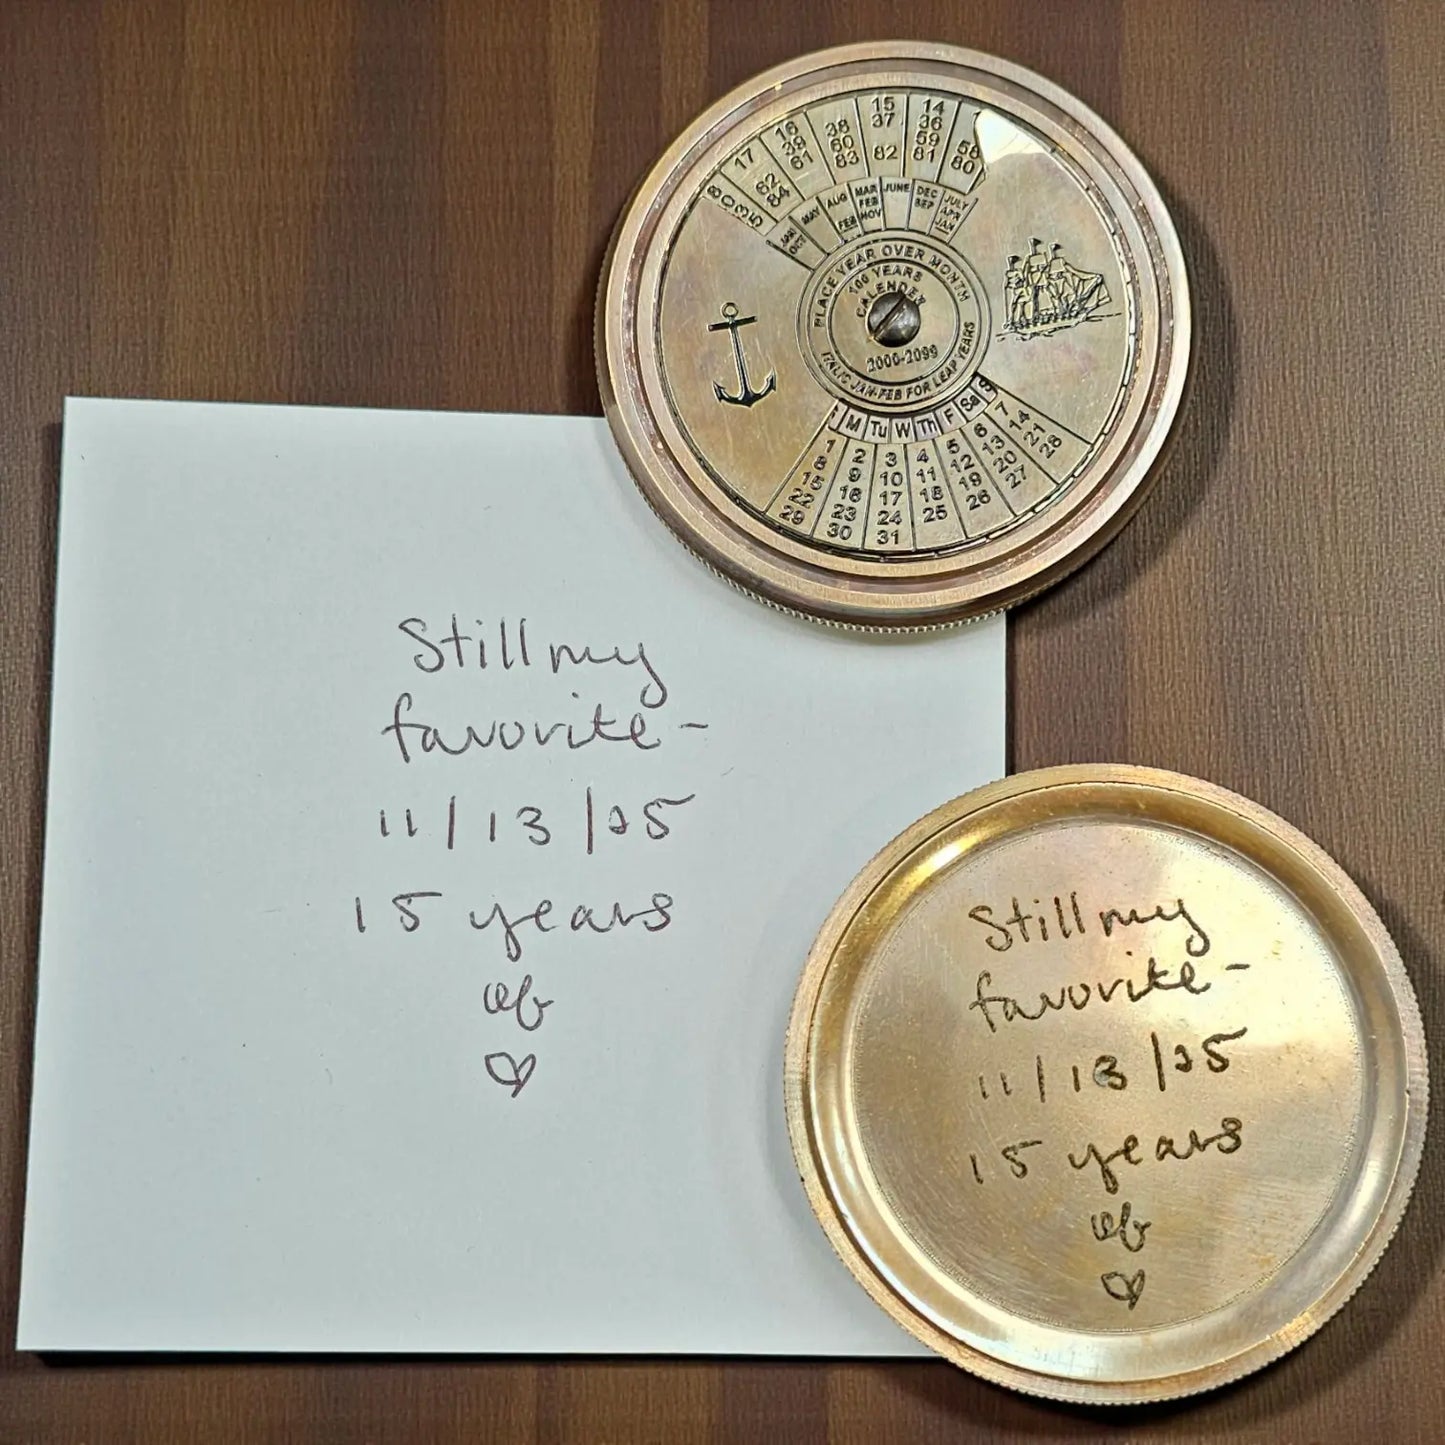 15 14
16 38 37 36
17 39 60 59 58
62 61 83 82 81 80
84
8 0 3 5
MAR JUNE DEC JULY
MAY AUG FEB SEP APR
JAN OCT FEB NOV JAN
PLACE YEAR OVER MONTH
100 YEARS
CALENDER
2000-2099
ITALIC JAN-FEB FOR LEAP YEARS
M Tu W Th F Sa S
1 2 3 4 5 6 7
8 9 10 11 12 13 14
15 16 17 18 19 20 21
22 23 24 25 26 27 28
29 30 31
Still my
favorite -
11/13/25
15 years
of
Still my
favorite -
11/13/25
15 years
of